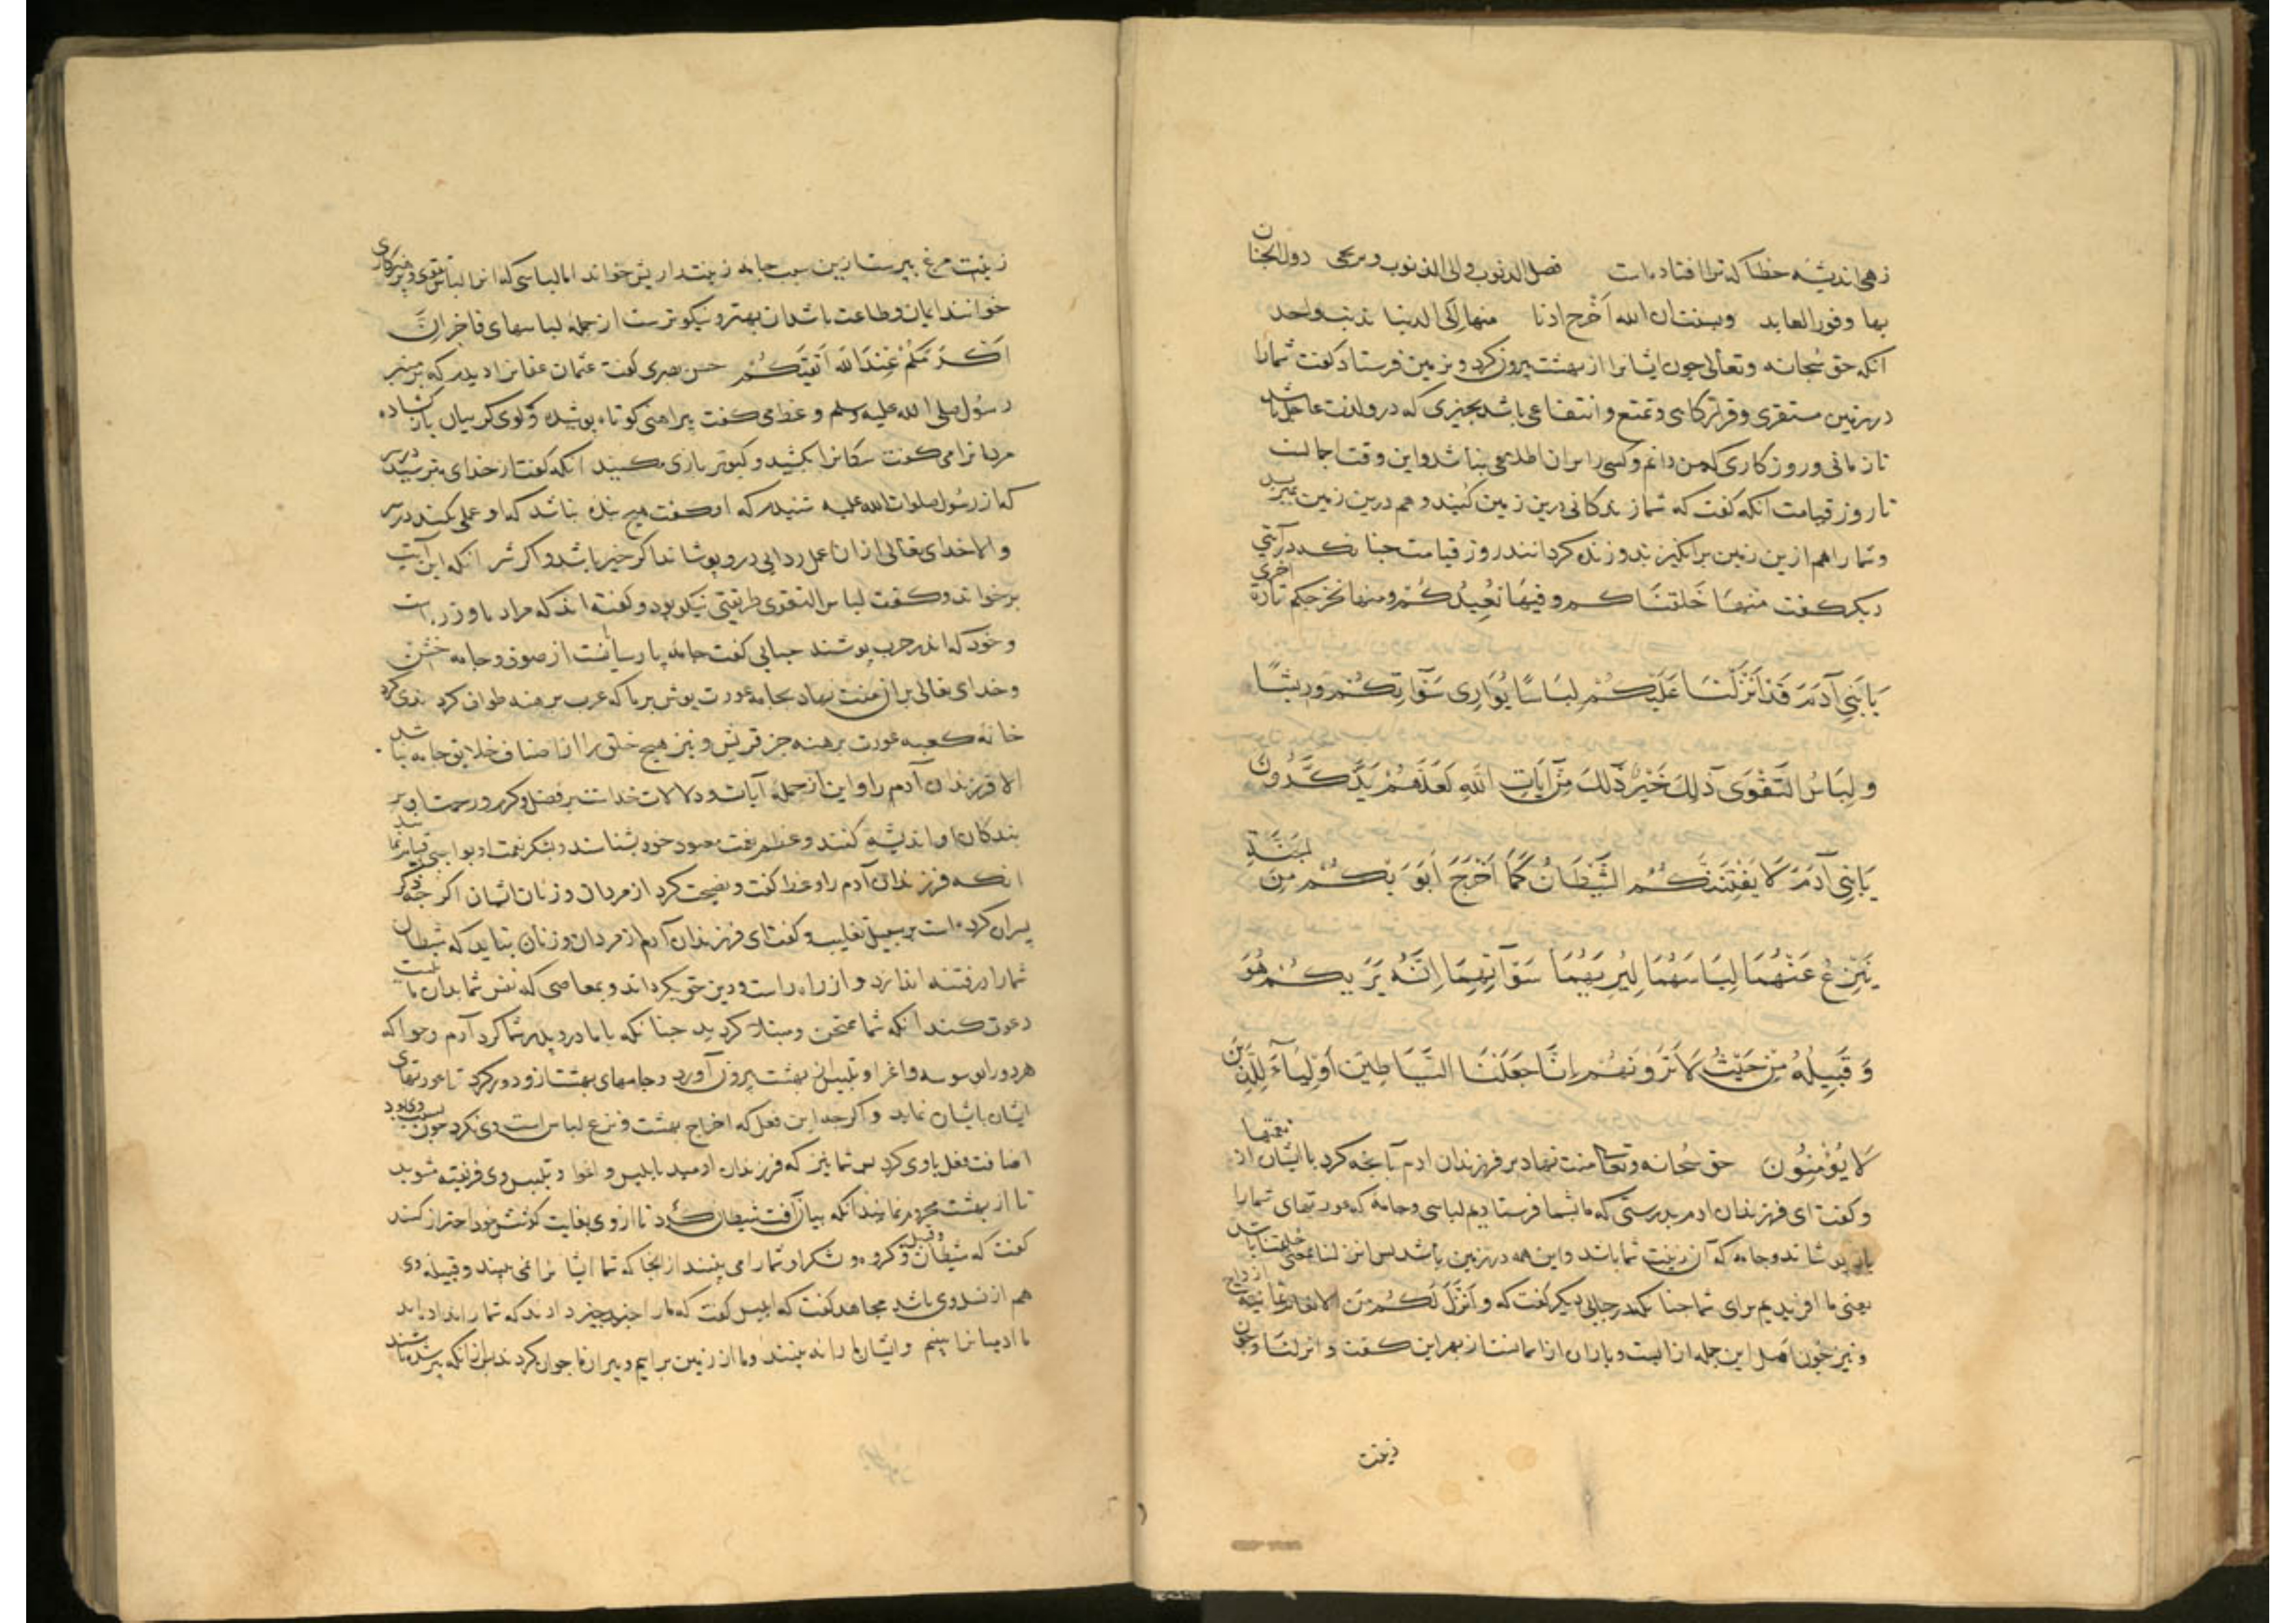 زهی اندیشه خطا که ترا افتاده است تصل الذنوب والی الذنوب وترتجی دول الجنان
بها وفوز العابد ونسیت ان الله اخرج ادنا منها الی الدنیا بذنب واحد
آنکه حق سبحانه وتعالی چون ایشانرا از بهشت بیرون کرد و بزمین فرستاد گفت شمارا
در زمین مستقری وقرارگاهی وتمتع وانتفاعی باشد بچیزی که درو لذت عاجل باشد
تا زمانی وروزکاری که من دانم وکسی را بران اطلاعی نباشد واین وقت اجالست
تا روز قیامت آنکه گفت که شما زندکانی درین زمین کنید وهم درین زمین بمیرید
وشما را هم ازین زمین برانگیزند وزنده کردانند روز قیامت چنانکه در آیتی
دیکر گفت منها خلقناکم وفیها نعیدکم ومنها نخرجکم تارة اخری
یَا بَنِی آدَمَ قَدْ اَنْزَلْنَا عَلَیْکُمْ لِبَاسًا یُوَارِی سَوْآتِکُمْ وَرِیشًا
وَلِبَاسُ التَّقْوَی ذَلِکَ خَیْرٌ ذَلِکَ مِنْ آیَاتِ اللَّهِ لَعَلَّهُمْ یَذَّکَّرُونَ
یَا بَنِی آدَمَ لَا یَفْتِنَنَّکُمُ الشَّیْطَانُ کَمَا اَخْرَجَ اَبَوَیْکُمْ مِنَ الْجَنَّةِ
یَنْزِعُ عَنْهُمَا لِبَاسَهُمَا لِیُرِیَهُمَا سَوْآتِهِمَا اِنَّهُ یَرَیکُمْ هُوَ
وَقَبِیلُهُ مِنْ حَیْثُ لَا تَرَوْنَهُمْ اِنَّا جَعَلْنَا الشَّیَاطِینَ اَوْلِیَاءَ لِلَّذِینَ
لَا یُؤْمِنُونَ حق سبحانه وتعالی منت نهاد بر فرزندان ادم بآنچه کرد با ایشان از نعمتها
وگفت ای فرزندان ادم بدرستی که ما بشما فرستادیم لباسی وجامه که عورتهای شمارا
باز پوشاند وجامه که آن زینت شما باشد واین همه در زمین باشد پس انزلنا بمعنی خلقنا باشد
یعنی ما افریدیم برای شما چنانکه در جای دیکر گفت که وانزل لکم من الانعام ثمانیة ازواج
ونیز چون اصل این جمله از آبست وباران از اسمانست از بهر این گفت وانزلنا وچون
زینت
زینت مرغ پرست ازین سبب جامه زینت را ریش خواند اما لباسی که انرا لباس تقوی وپرهیزکاری
خوانند ایمان وطاعت باشد ان بهتر ونیکوترست از جمله لباسهای فاخر انَّ
اَکْرَمَکُمْ عِنْدَ اللَّهِ اَتْقَیکُمْ حسن بصری گفت عثمان عفانرا دیدم که بر منبر
رسول صلی الله علیه وسلم وعظ می گفت پیراهنی کوتاه پوشیده وکوی کریبان باز کشاده
مردمانرا می گفت سکانرا بکشید وکبوتر بازی مکنید آنکه گفت از خدای بترسید در سر
که از رسول صلوات الله علیه شنیدم که او گفت هیچ بنده نباشد که او عملی کند در سر
والا خدای تعالی از ان عمل ردایی درو پوشاند اکر خیر باشد واکر شر آنکه این آیت
برخواند وگفت لباس التقوی طریقتی نیکو بود وگفته اند که مراد باو زره است
وخود که اندر حرب پوشند جبایی گفت جامه پارسایانست از صوف وجامه خشن
وخدای تعالی بر ان منت نهاد بجامه عورت پوش بر ما که عرب برهنه طواف کردندی کرد
خانه کعبه عورت برهنه جز قریش ونیز هیچ خلق را از اصناف خلایق جامه نباشد
الا فرزندان آدم را واین از جمله آیات ودلالات خداست بر فضل وکرم ورحمت او بر
بندکان او اندیشه کنند وعظم نعمت معبود خود بشناسند وبشکر نعمت او بواجبی قیام نمایند
آنکه فرزندان آدم را وعظ گفت ونصیحت کرد از مردان وزنان ایشان اکر چه ذکر
پسران کرده است بر سبیل تغلیب وگفت ای فرزندان آدم از مردان وزنان نباید که شیطان
شما را در فتنه اندازد واز راه راست ودین حق بکرداند وبمعاصی که نفس شما بدان مایلست
دعوت کند آنکه شما ممتحن ومبتلا کردید چنانکه با مادر وپدر شما کرد آدم وحوا که
هر دو را بوسوسه واغرا وتلبیس از بهشت بیرون آورد وجامهای بهشت ازو دور کرد تا عورتهای
ایشان بایشان نماید واکر چه این فعل که اخراج بهشت ونزع لباس است وی نکرد چون بسبب وی بود
اضافت فعل باوی کرد پس شما نیز که فرزندان ادمید بابلیس واغوا وتلبیس وی فریفته شوید
تا از بهشت محروم نمانید آنکه بیان آفت شیطان کرد تا از وی بغایت کوشش خود احتراز کنند
گفت که شیطان وقبیله وکروه ولشکر او شما را می بینند از انجا که شما ایشانرا نمی بینید وقبیله وی
هم از نسل وی باشد مجاهد گفت که ابلیس گفت که ما را چند چیز دادند که شما را نداده اند
ما ادمیانرا بینیم وایشان ما را نه بینند وما از زمین برایم وپیران ما جوان کردند پس از آنکه پیر شده باشند